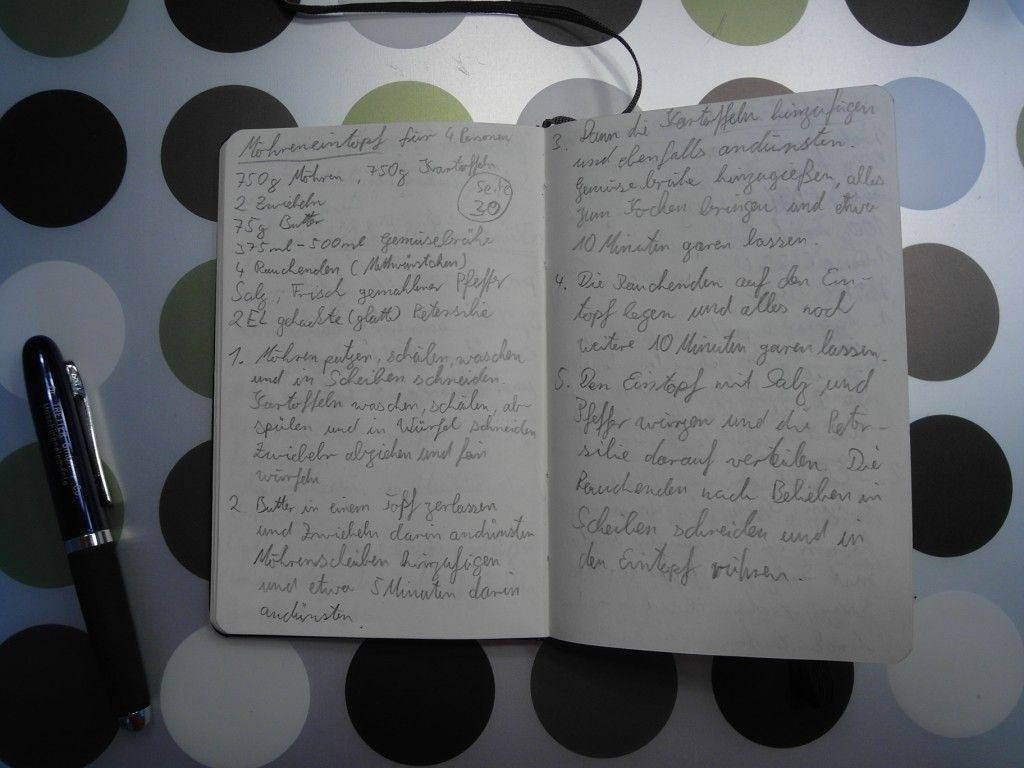 Möhreneintopf für 4 Personen
750g Möhren, 750g Kartoffeln
2 Zwiebeln
Seite
30
75g Butter
375ml-500ml Gemüsebrühe
4 Rauchenden (Mettwürstchen)
Salz, Frisch gemahlener Pfeffer
2 EL gehackte (glatte) Petersilie
1. Möhren putzen, schälen, waschen
und in Scheiben schneiden.
Kartoffeln waschen, schälen, ab-
spülen und in Würfel schneiden
Zwiebeln abziehen und fein
würfeln
2 Butter in einem Topf zerlassen
und Zwiebeln darin andünsten
Möhrenscheiben hinzufügen
und etwa 5 Minuten darin
andünsten.
3. Dann die Kartoffeln hinzufügen
und ebenfalls andünsten.
Gemüsebrühe hinzugießen, alles
zum Kochen bringen und etwa
10 Minuten garen lassen.
4. Die Rauchenden auf den Ein-
topf legen und alles noch
weitere 10 Minuten garen lassen.
5. Den Eintopf mit Salz und
Pfeffer würzen und die Peter-
silie darauf verteilen. Die
Rauchenden nach Belieben in
Scheiben schneiden und in
den Eintopf rühren.